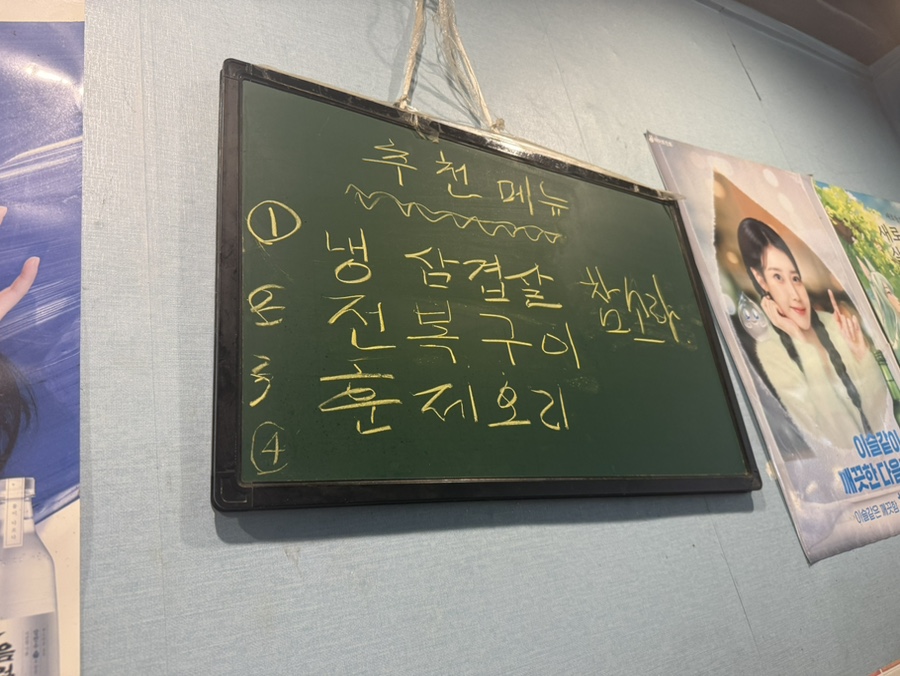 추천 메뉴
① 냉 삼겹살
2 전 복 구 이 참소라
3 훈 제 오 리
④
이슬같이
깨끗한 다음
이슬같은 깨끗함
새로